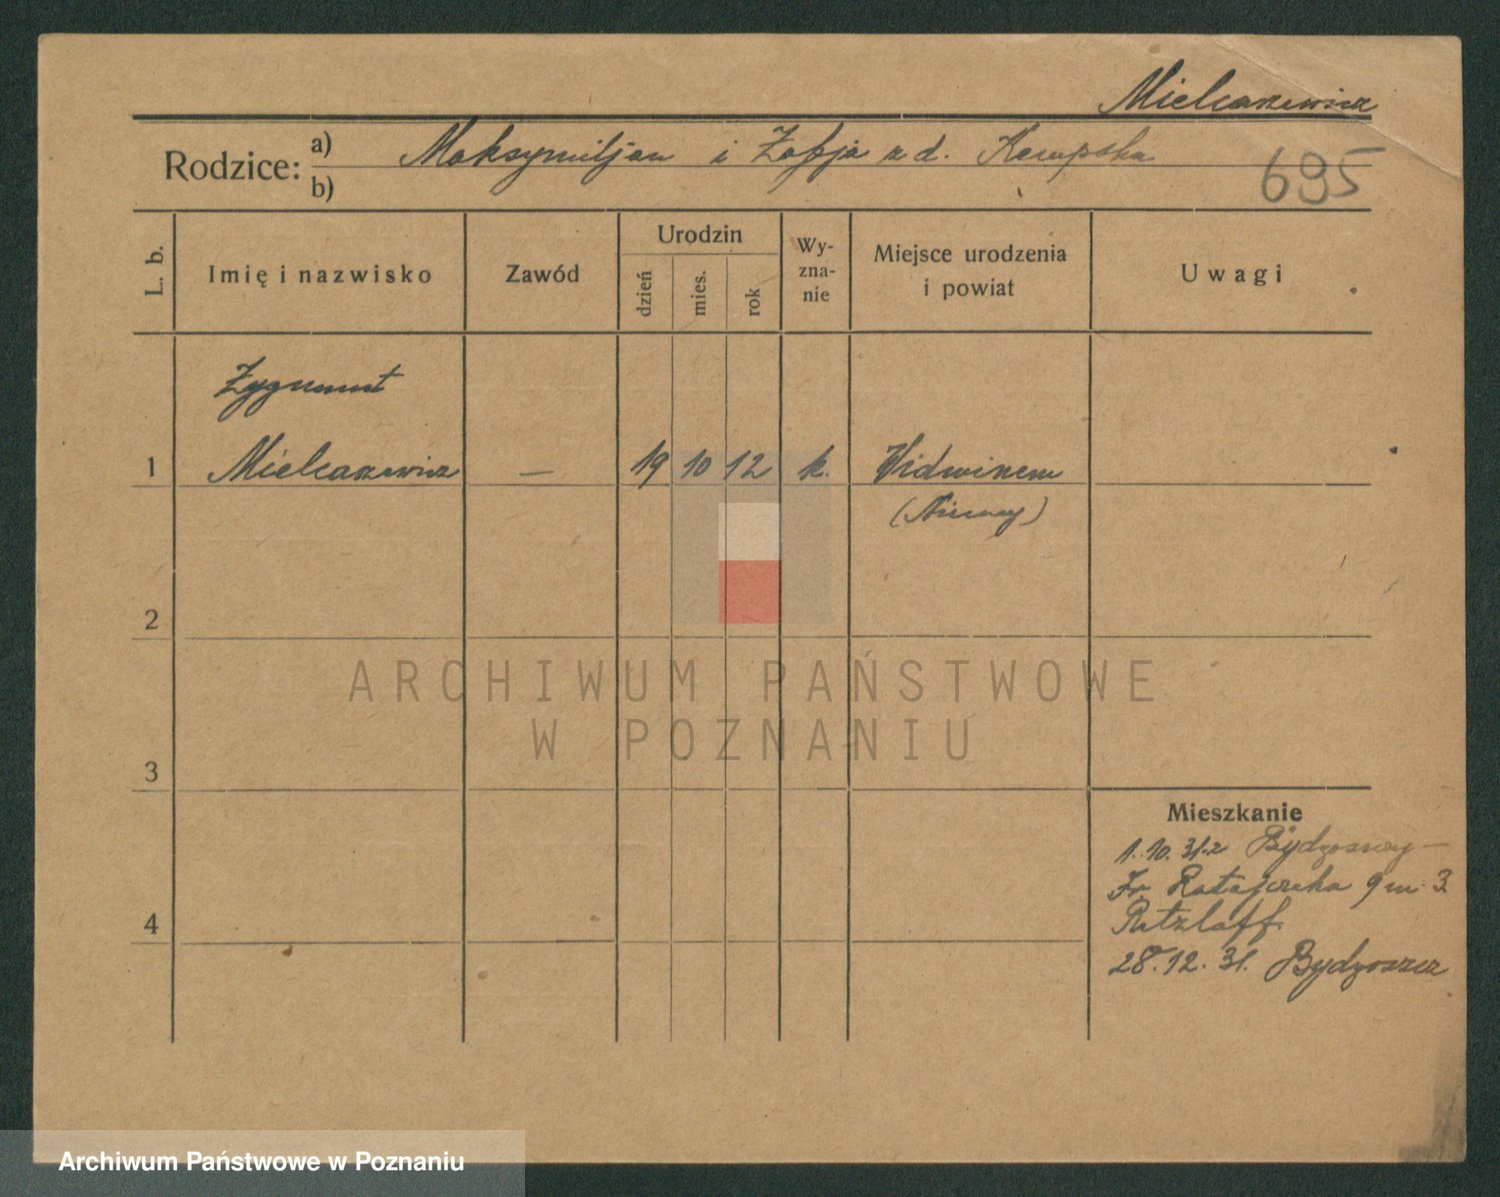 Mielcarzewicz
Rodzice: a) Maksymiljan i Zofja z d. Kempska
b)
695
L. b.
Imię i nazwisko
Zawód
Urodzin
dzień
mies.
rok
Wy-
zna-
nie
Miejsce urodzenia
i powiat
Uwagi
Zygmunt
1 Mielcarzewicz — 19 10 12 k.
(Niemcy)
2
ARCHIWUM PAŃSTWOWE
W POZNANIU
3
Mieszkanie
1.10.31 z Bydgoszczy —
Fr. Ratajczaka 9 m. 3
Retzlaff.
4
28.12.31. Bydgoszcz
Archiwum Państwowe w Poznaniu